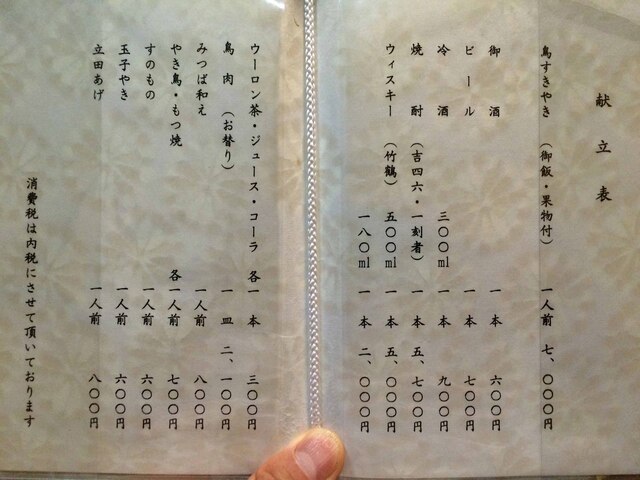 献立表
鳥すきやき（御飯・果物付） 一人前 七、〇〇〇円
御酒 一本 六〇〇円
ビール 一本 七〇〇円
冷酒 三〇〇ml 一本 九〇〇円
焼酎（吉四六・一刻者） 一本 五、七〇〇円
ウィスキー（竹鶴） 五〇〇ml 一本 五、〇〇〇円
一八〇ml 一本 二、〇〇〇円
ウーロン茶・ジュース・コーラ 各一本 三〇〇円
鳥肉（お替り） 一皿 二、一〇〇円
みつば和え 一人前 八〇〇円
やき鳥・もつ焼 各一人前 七〇〇円
すのもの 一人前 六〇〇円
玉子やき 一人前 六〇〇円
立田あげ 一人前 八〇〇円
消費税は内税にさせて頂いております